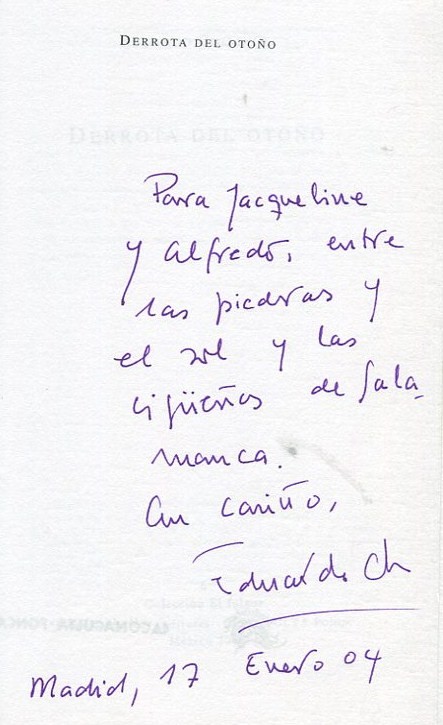 DERROTA DEL OTOÑO
DERROTA DEL OTOÑO
Para Jacqueline
y Alfredo, entre
las piedras y
el sol y las
cigüeñas de Sala-
manca.
Con cariño,
Eduardo Ch
Madrid, 17 Enero 04